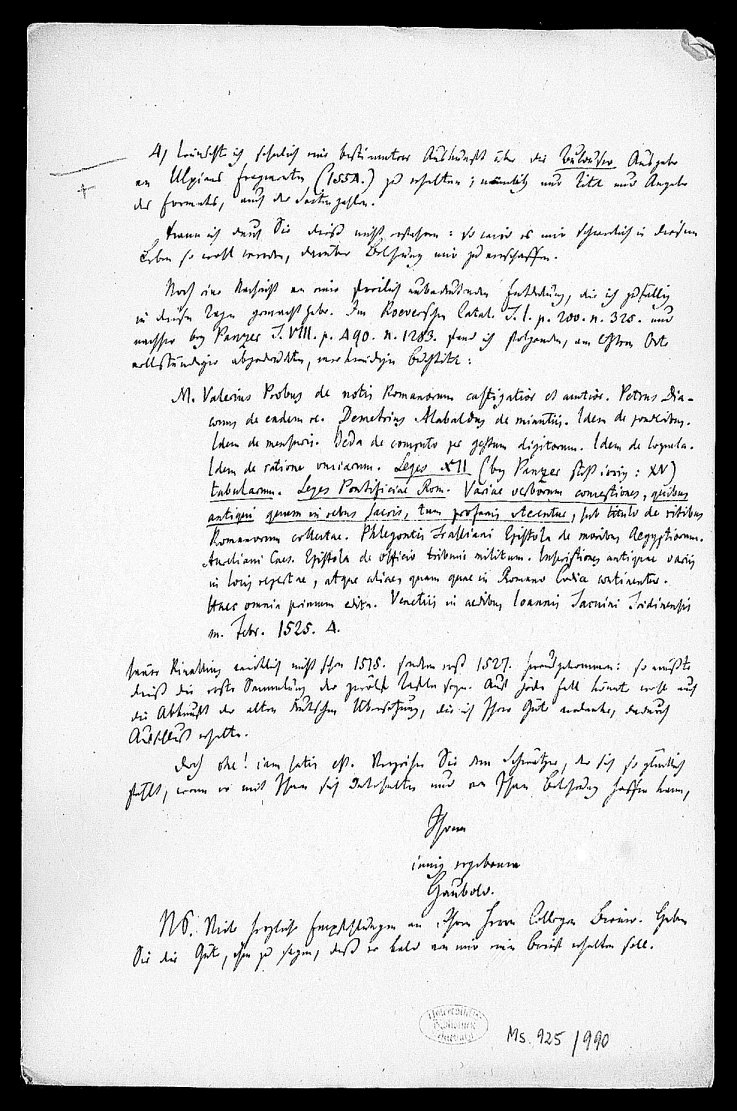 4) wünscht ich sehnlich eine bestimmtere Auskunft über die Toulouser Ausgabe
von Ulpians Fragmenten (1554.) zu erhalten; nämlich nur Titel und Angabe
des Formats, auch der Seitenzahlen.
Kann ich durch Sie dieß nicht erfahren: so wird es mir schwerlich in diesem
Leben so wohl werden, darüber Belehrung mir zu verschaffen.
Noch eine Nachricht von einer freilich unbedeutenden Entdeckung, die ich zufällig
in diesen Tagen gemacht habe. Im Roeverschen Catal. T. I. p. 200. n. 325. und
nachher bey Panzer T. VIII. p. 490. n. 1283. fand ich folgenden, am letztern Orte
vollständiger abgedruckten, merkwürdigen Buchtitel:
M. Valerius Probus de notis Romanorum castigatior et auctior. Petrus Dia-
conus de eadem re. Demetrius Alabaldus de minutiis. Idem de ponderibus.
Idem de mensuris. Beda de computo per gestum digitorum. Idem de loquela.
Idem de ratione unciarum. Leges XII (bey Panzer steht irrig: XV)
tabularum. Leges Pontificiae Rom. Variae verborum conceptiones, quibus
antiqui quum in rebus sacris, tum profanis uterentur, sub titulo de ritibus
Romanorum collectae. Phlegontis Tralliani Epistola de moribus Aegyptiorum.
Aureliani Caes. Epistola de officio tribuni militum. Inscriptiones antiquae variis
in locis repertae, atque aliae, quam quae in Romano Codice continentur.
Haec omnia primum edita. Venetiis in aedibus Ioannis Tacuini Tridinensis
m. Febr. 1525. 4.
Rivallius wirklich nicht schon 1515. sondern erst 1527. herausgekommen: so müßte
dieß die erste Sammlung der zwölf Tafeln seyn. Auf jeden Fall könnte wohl auch
die Abkunft der alten deutschen Übersetzung, die ich Ihrer Güte verdanke, dadurch
Aufschluß erhalten.
Doch ohe! iam satis est. Verzeihen Sie dem Schwätzer, der sich so glücklich
fühlt, wenn er mit Ihnen sich unterhalten und von Ihnen Belehrung hoffen kann,
Ihrem
innig ergebenen
Haubold.
NS. Viele herzliche Empfehlungen an Ihren Herrn Collegen Biener. Haben
Sie die Güte, ihm zu sagen, daß er bald von mir einen Brief erhalten soll.
Ms. 925 / 990